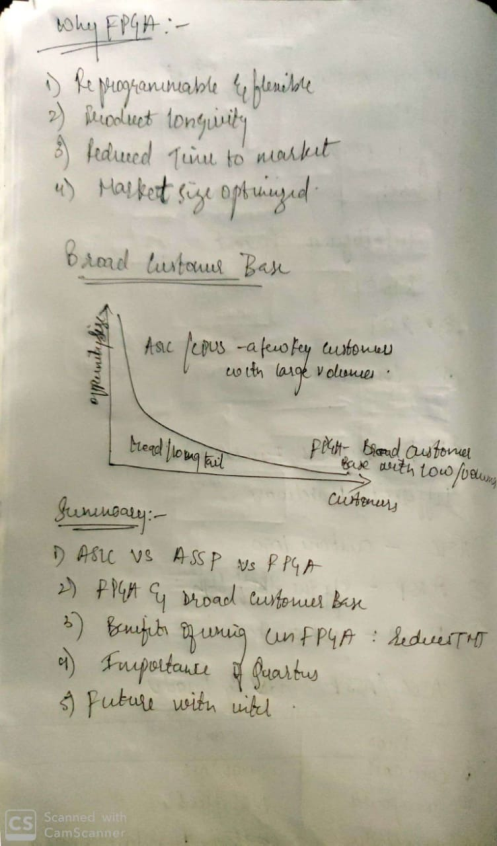 Why FPGA :-
1) Reprogrammable & flexible
2) Product longivity
3) Reduced Time to market
4) Market size optimized.
Broad Customer Base
opportunity size
ASIC /CPUS - a few key customer
with large volumes.
Mead/long tail
FPGA- Broad customer
Base with low/volums
Customers
Summary:-
1) ASIC VS ASSP VS FPGA
2) FPGA & broad customer Base
3) Benefits of using FPGA : reduces TMT
4) Importance of Quartus
5) Future with intel.
CS Scanned with
CamScanner